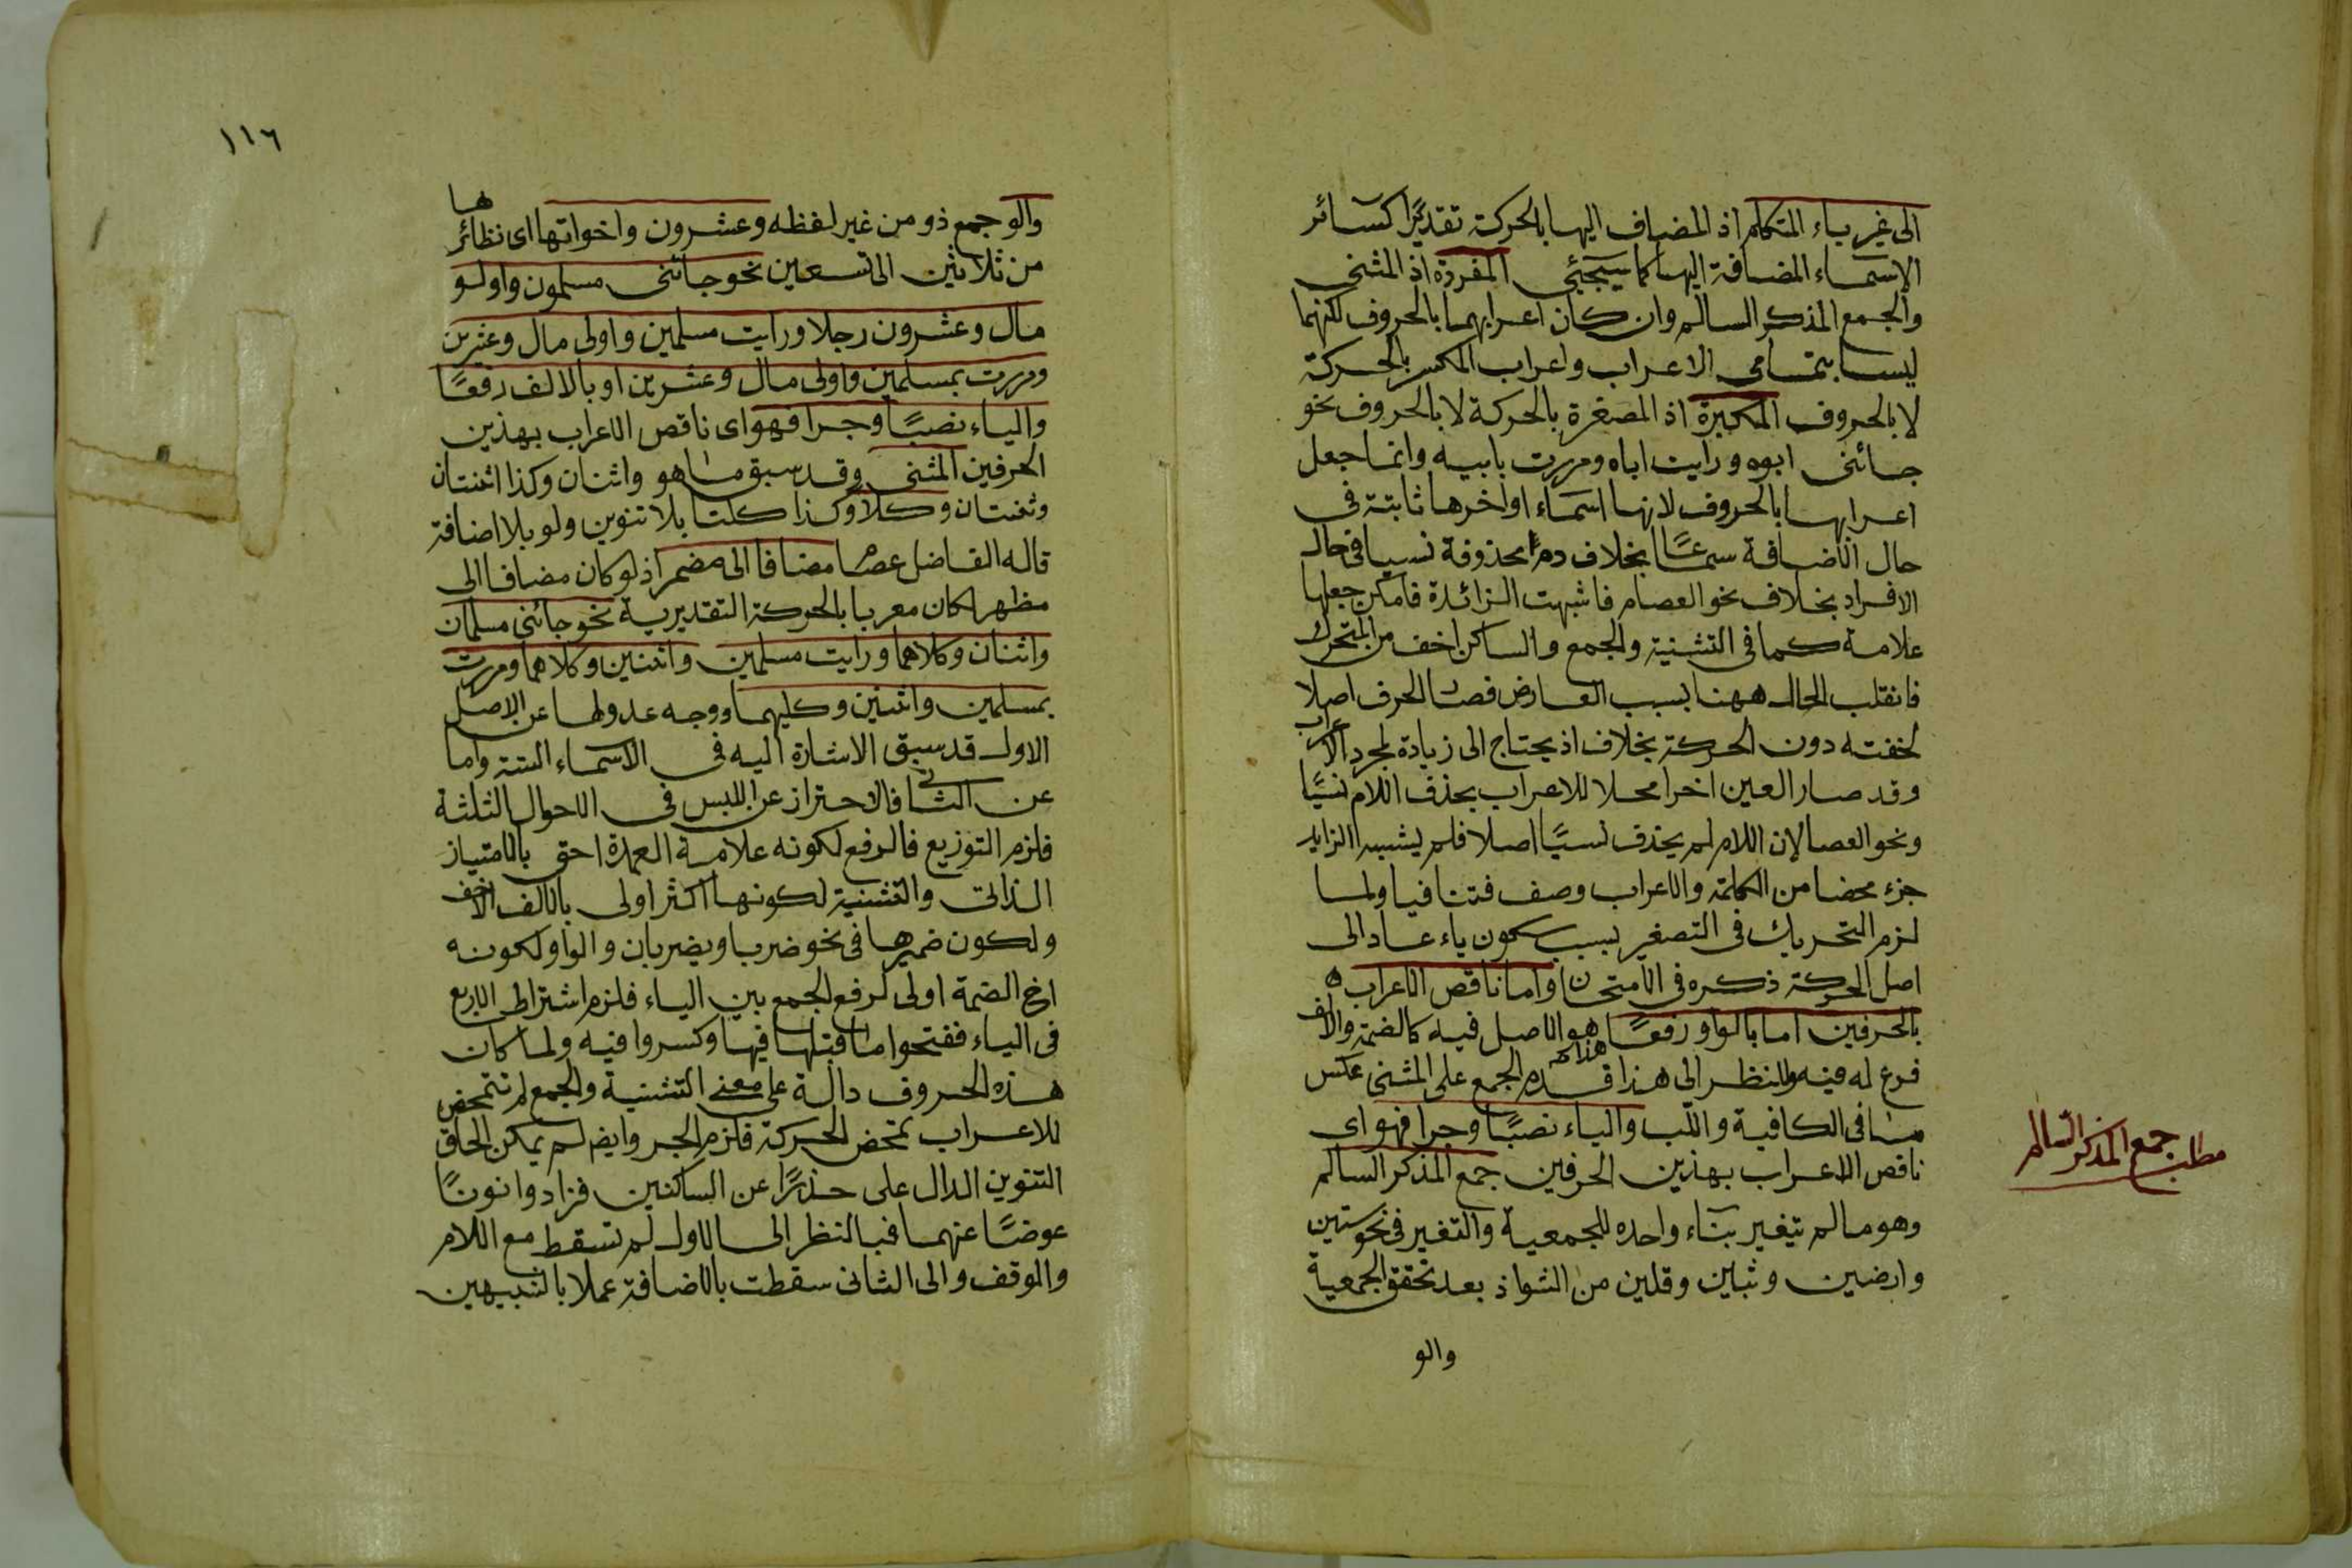 الى غير ياء المتكلم اذ المضاف اليها بالحركة تقديرًا كسائر
الاسماء المضافة اليها كما سيجئ المفردة اذ المثنى
والجمع المذكر السالم وان كان اعرابهما بالحروف لكنهما
ليسا بتمامى الاعراب واعراب المكسر بالحركة
لا بالحروف المكبرة اذ المصغرة بالحركة لا بالحروف نحو
جائنى ابوه ورايت اباه ومررت بابيه وانما جعل
اعرابها بالحروف لانها اسماء اواخرها ثابتة فى
حال الاضافة سمعًا بخلاف دم محذوفة نسيا فى حال
الافراد بخلاف نحو العصا فاشبهت الزائدة فامكن جعلها
علامة كما فى التثنية والجمع والساكن اخف من المتحرك
فانقلب الحال ههنا بسبب العارض فصار الحرف اصلا
لخفته دون الحركة بخلاف اذ يحتاج الى زيادة لمجرد الاعراب
وقد صار العين اخرا محلا للاعراب بحذف اللام نسيًا
ونحو العصا لان اللام لم يحذف نسيًا اصلا فلم يشبه الزايد
جزء محضا من الكلمة والاعراب وصف فتنافيا ولما
لزم التحريك فى التصغير بسبب سكون ياء عاد الى
اصل الحركة ذكره فى الامتحان واما ناقص الاعراب
بالحرفين اما بالواو رفعًا هو الاصل فيه كالضمة والالف
فرع له فيه وللنظر الى هذا قدم الجمع على المثنى عكس
ما فى الكافية واللب والياء نصبًا وجرا فهو اى
ناقص الاعراب بهذين الحرفين جمع المذكر السالم
وهو ما لم يتغير بناء واحده للجمعية والتغير فى نحو سنين
وارضين وثبين وقلين من الشواذ بعد تحقق الجمعية
والو
مطلب جمع المذكر السالم
١١٦
والو جمع ذو من غير لفظه وعشرون واخواتها اى نظائرها
من ثلاثين الى تسعين نحو جائنى مسلمون واولو
مال وعشرون رجلا ورايت مسلمين واولى مال وعشرين
ومررت بمسلمين واولى مال وعشرين او بالالف رفعًا
والياء نصبًا وجرا فهو اى ناقص الاعراب بهذين
الحرفين المثنى وقد سبق ما هو واثنان وكذا اثنتان
وثنتان وكلا وكذا كلتا بلا تنوين ولو بلا اضافة
قاله الفاضل عصام مضافا الى مضمر اذ لو كان مضافا الى
مظهر لكان معربا بالحركة التقديرية نحو جائنى مسلمان
واثنان وكلاهما ورايت مسلمين واثنين وكلاهما ومررت
بمسلمين واثنين وكليهما ووجه عدولها عن الاصل
الاول قد سبق الاشارة اليه فى الاسماء الستة واما
عن الثانى فالاحتراز عن اللبس فى الاحوال الثلثة
فلزم التوزيع فالرفع لكونه علامة العمدة احق بالامتياز
الذاتى والتثنية لكونها اكثر اولى بالالف الاخف
ولكون ضميرها فى نحو ضربا ويضربان والواو لكونه
اخ الضمة اولى لرفع الجمع بين الياء فلزم اشتراط الاربع
فى الياء ففتحوا ما قبلها فيها وكسروا فيه ولما كان
هذه الحروف دالة على معنى التثنية والجمع لم تتمحض
للاعراب تمحض الحركة فلزم الجبر وايضا لم يمكن الحاق
التنوين الدال على حذرًا عن الساكنين فزادوا نونًا
عوضًا عنهما فبالنظر الى الاول لم تسقط مع اللام
والوقف والى الثانى سقطت بالاضافة عملا بالشبيهين